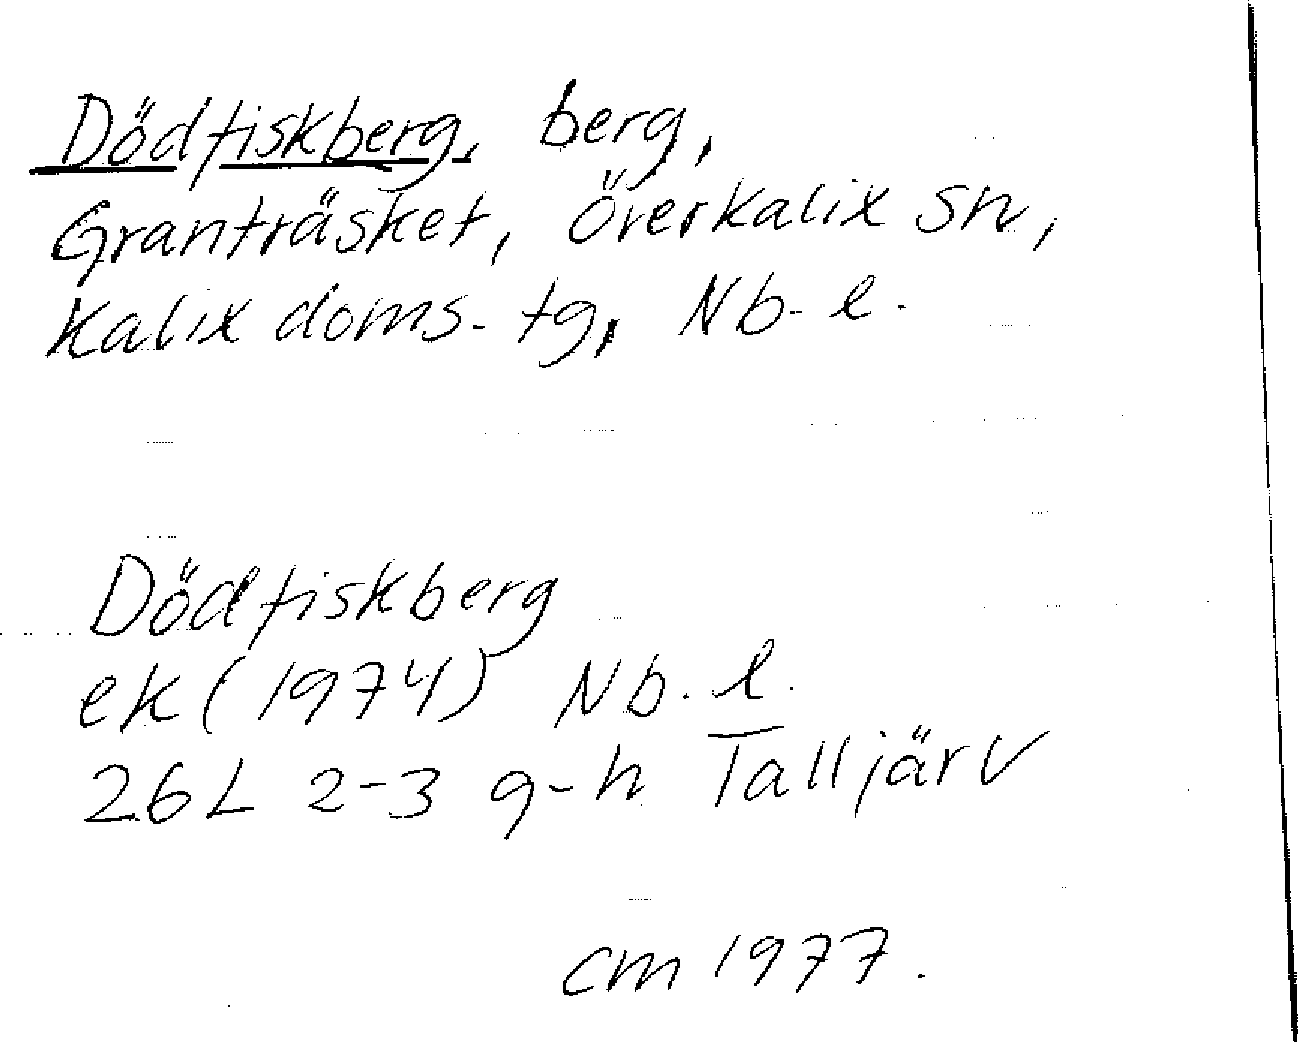 Dödfiskberg, berg,
Granträsket, Överkalix sn,
Kalix doms. tg, Nb. l.
Dödfiskberg
ek (1974) Nb. l.
26L 2-3 g-h Talljärv
CM 1977.